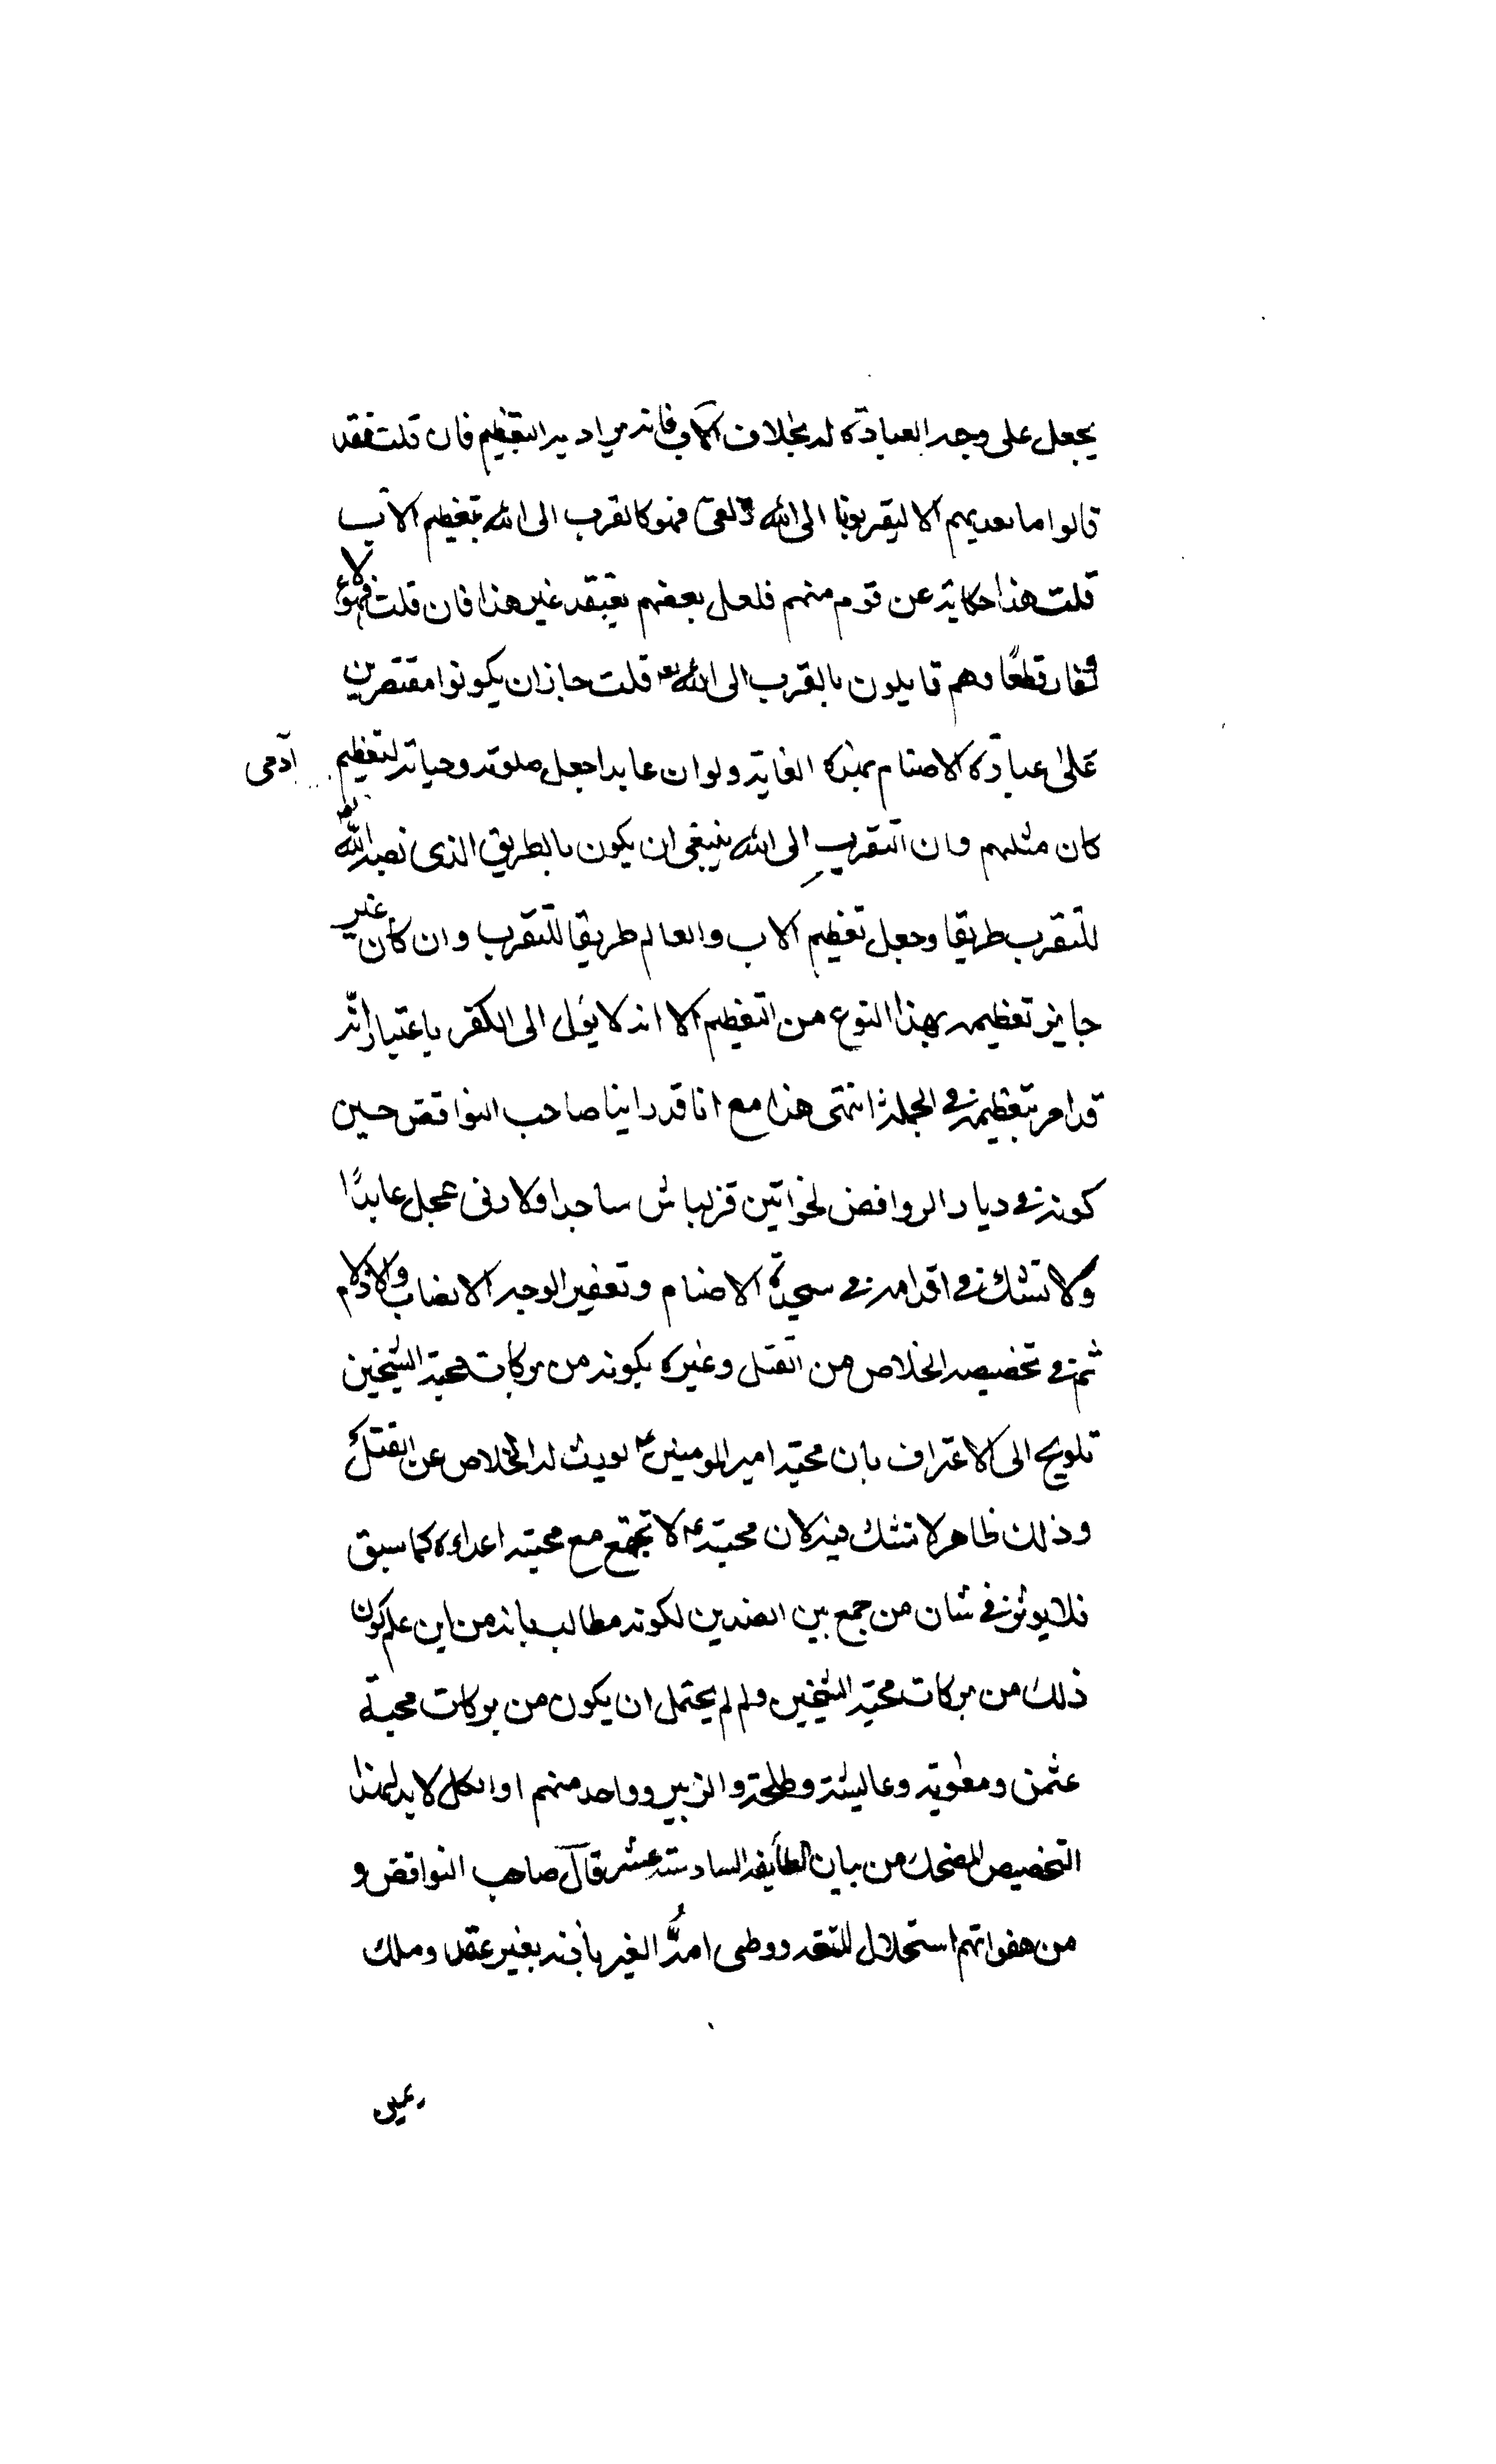 يجعل على وجه العبادة له بخلاف الاب فانه يراد به التعظيم فان قلت فقد
قالوا ما نعبدهم الا ليقربونا الى الله زلفى فهو كالقرب الى الله بتعظيم الاب
قلت هذا حكاية عن قوم منهم فلعل بعضهم يعتقد غير هذا فان قلت فهؤلاء
كفار قطعًا وهم قايلون بالقرب الى الله قلت جاز ان يكونوا مقتصرين
على عبادة الاصنام بهذه الغاية ولو ان عابدا جعل صلوته وحياته لتعظيم آدمى
كان مثلهم وان التقرب الى الله ينبغى ان يكون بالطريق الذى نصبه الله
للتقرب طريقا وجعل تعظيم الاب والعالم طريقا للتقرب وان كان غير
جايز تعظيمه بهذا النوع من التعظيم الا انه لا يؤل الى الكفر باعتبار انه
قد امر بتعظيمه فى الجملة انتهى هذا مع انا قد راينا صاحب النواقض حين
كونه فى ديار الروافض لخواتين قزلباش ساجدا ولادنى عجل عابدًا
ولا نشك فى اقدامه فى سجدة الاصنام وتعفير الوجه الانصاب والازلام
ثم فى تخصيصه الخلاص من القتل وغيره بكونه من بركات محبة الشيخين
تلويح الى الاعتراف بان محبة امير المومنين ع لو يث له الخلاص عن القتل
وذلك ظاهر لا نشك فيه لان محبته ع لا تجتمع مع محبة اعداءه كما سبق
فلا يوثر فى شان من جمع بين الضدين لكونه مطالب بانه من اين علم كون
ذلك من بركات محبة الشيخين ولم لم يحتمل ان يكون من بركات محبة
عثمن ومعوية وعايشة وطلحة والزبير وواحد منهم او الكل لا بد لهذا
التخصيص المضحك من بيان الطايفه السادسته عشر قال صاحب النواقض و
من هفواتهم استحلال المتعه ووطى امة الغير بأذنه بغير عقد وملك